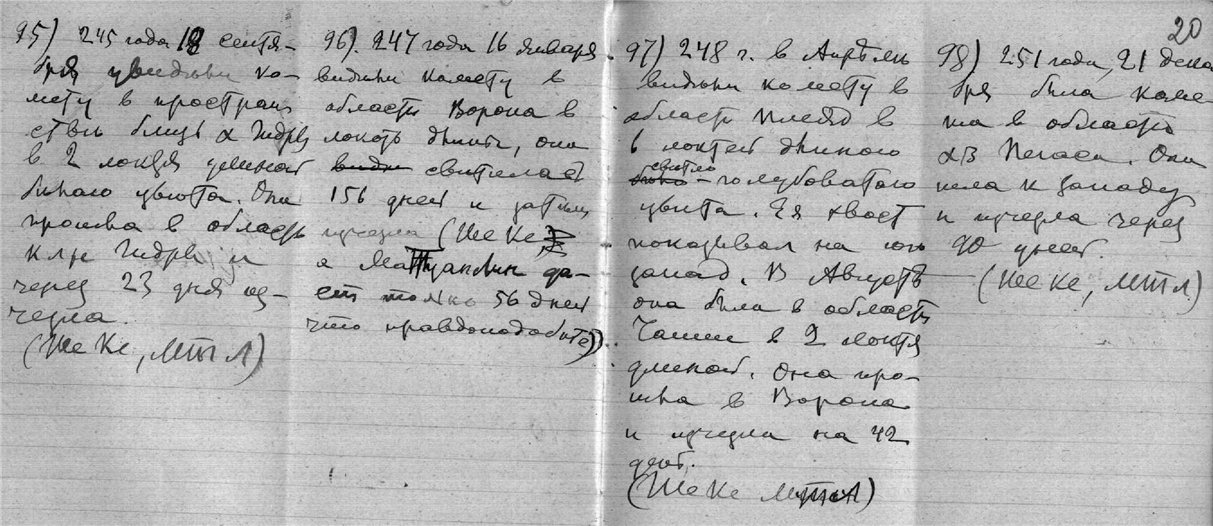 20
95) 245 года 18 сентя-
бря увидѣли ко-
мету в простран
ствѣ близь α Гидры
в 2 локтя длиной
бѣлаго цвѣта. Она
прошла в область
Гидры и
через 23 дня ис-
чезла.
(Ше Ке, МТЛ)
96). 247 года 16 января
видѣли комету в
области Ворона в
локоть длины, она
свѣтила
156 дней и затѣм
исчезла (Ше Ке
а Матуанлин да-
ет только 56 дней
что правдоподобнѣе)).
97) 248 г. в Апрѣлѣ
видѣли комету в
области Плеяд в
6 локтей длиною
свѣтло
-голубоватаго
цвѣта. Ея хвост
показывал на юго
запад. В Августѣ
она была в области
Чаши в 2 локтя
длиной. Она про-
шла в Ворона
и исчезла на 42
день.
(Ше Ке МТЛ)
98) 251 года, 21 дека
бря была коме-
та в области
αβ Пегаса. Она
шла к западу
и исчезла через
90 дней.
(Ше Ке, МТЛ)